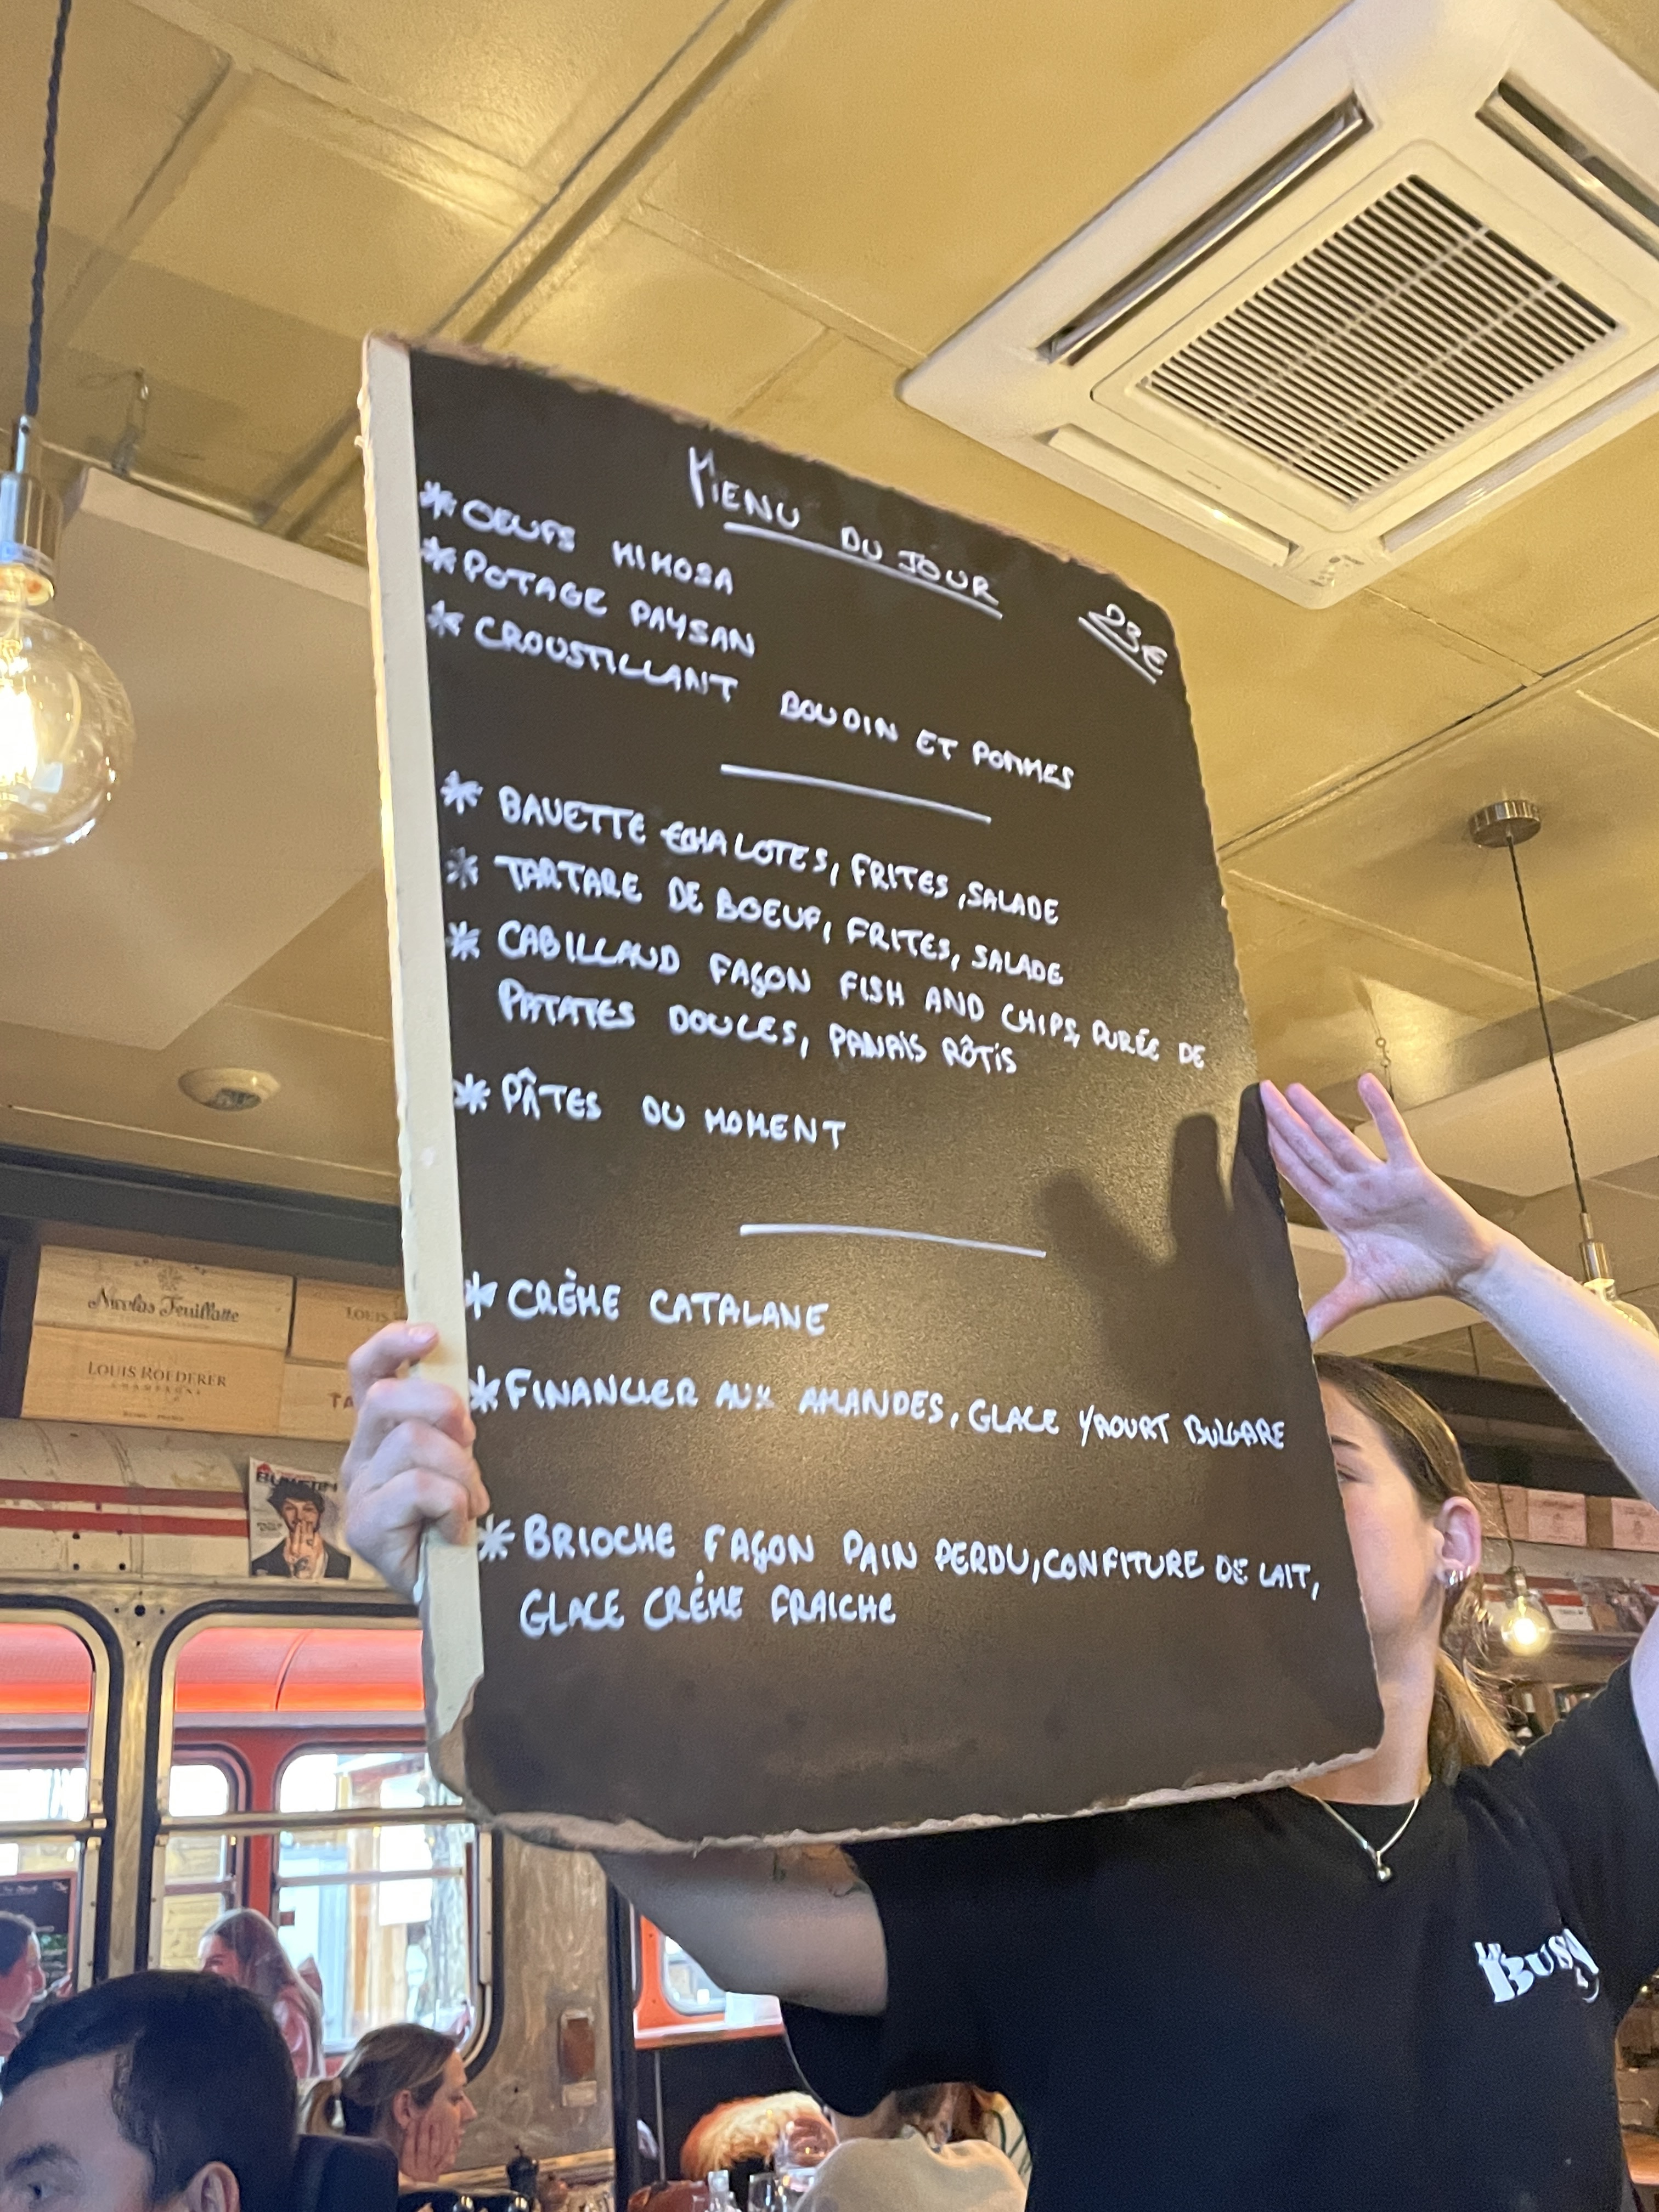 MENU DU JOUR
23€
* OEUFS MIMOSA
* POTAGE PAYSAN
* CROUSTILLANT BOUDIN ET POMMES
* BAVETTE ECHALOTES, FRITES, SALADE
* TARTARE DE BOEUF, FRITES, SALADE
* CABILLAUD FAÇON FISH AND CHIPS, PURÉE DE
PATATES DOUCES, PANAIS RÔTIS
* PÂTES DU MOMENT
* CRÈME CATALANE
* FINANCIER AUX AMANDES, GLACE YAOURT BULGARE
* BRIOCHE FAÇON PAIN PERDU, CONFITURE DE LAIT,
GLACE CRÈME FRAICHE
Nicolas Feuillatte
LOUIS
LOUIS ROEDERER
CHAMPAGNE